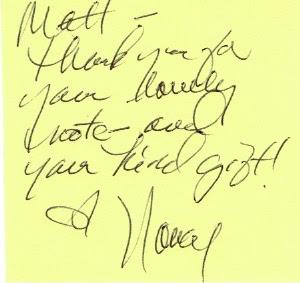 Matt -
Thank you for
your lovely
note - and
your kind gift!
Nancy